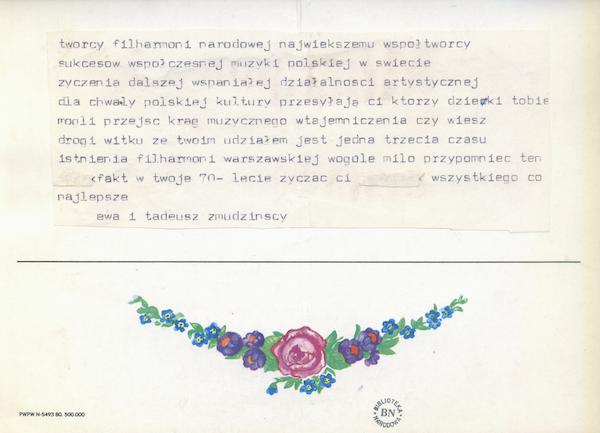 tworcy filharmoni narodowej najwiekszemu wspołtworcy
sukcesow wspołczesnej muzyki polskiej w swiecie
zyczenia dalszej wspaniałej działalnosci artystycznej
dla chwały polskiej kultury przesyłają ci ktorzy dzieki tobie
mogli przejsc krag muzycznego wtajemniczenia czy wiesz
drogi witku ze twoim udziałem jest jedna trzecia czasu
istnienia filharmoni warszawskiej wogole milo przypomniec ten
fakt w twoje 70- lecie zyczac ci wszystkiego co
najlepsze
ewa i tadeusz zmudzinscy
PWPW N-5493 80. 500.000
BIBLIOTEKA
BN
NARODOWA